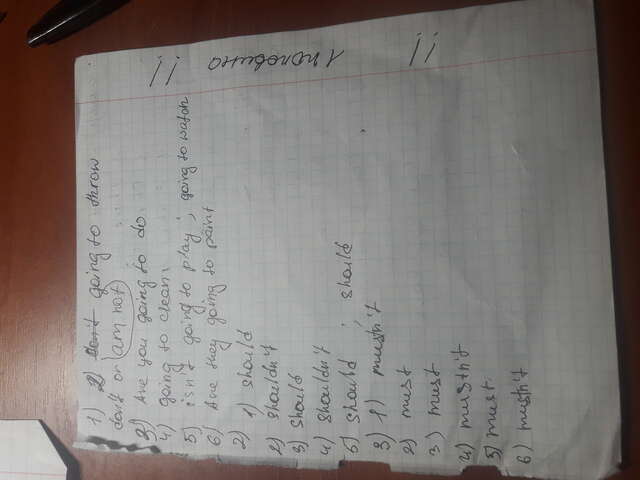 1) 2) don't going to throw
don't or am not
2) Are you going to do
4) going to clean
5) isn't going to play ; going to watch
6) Are they going to paint
2)
1) should
2) shouldn't
3) should
4) shouldn't
5) should ; should
3) 1) mustn't
2) must
3) must
4) mustn't
5) must
6) mustn't
!! 1 половина !!